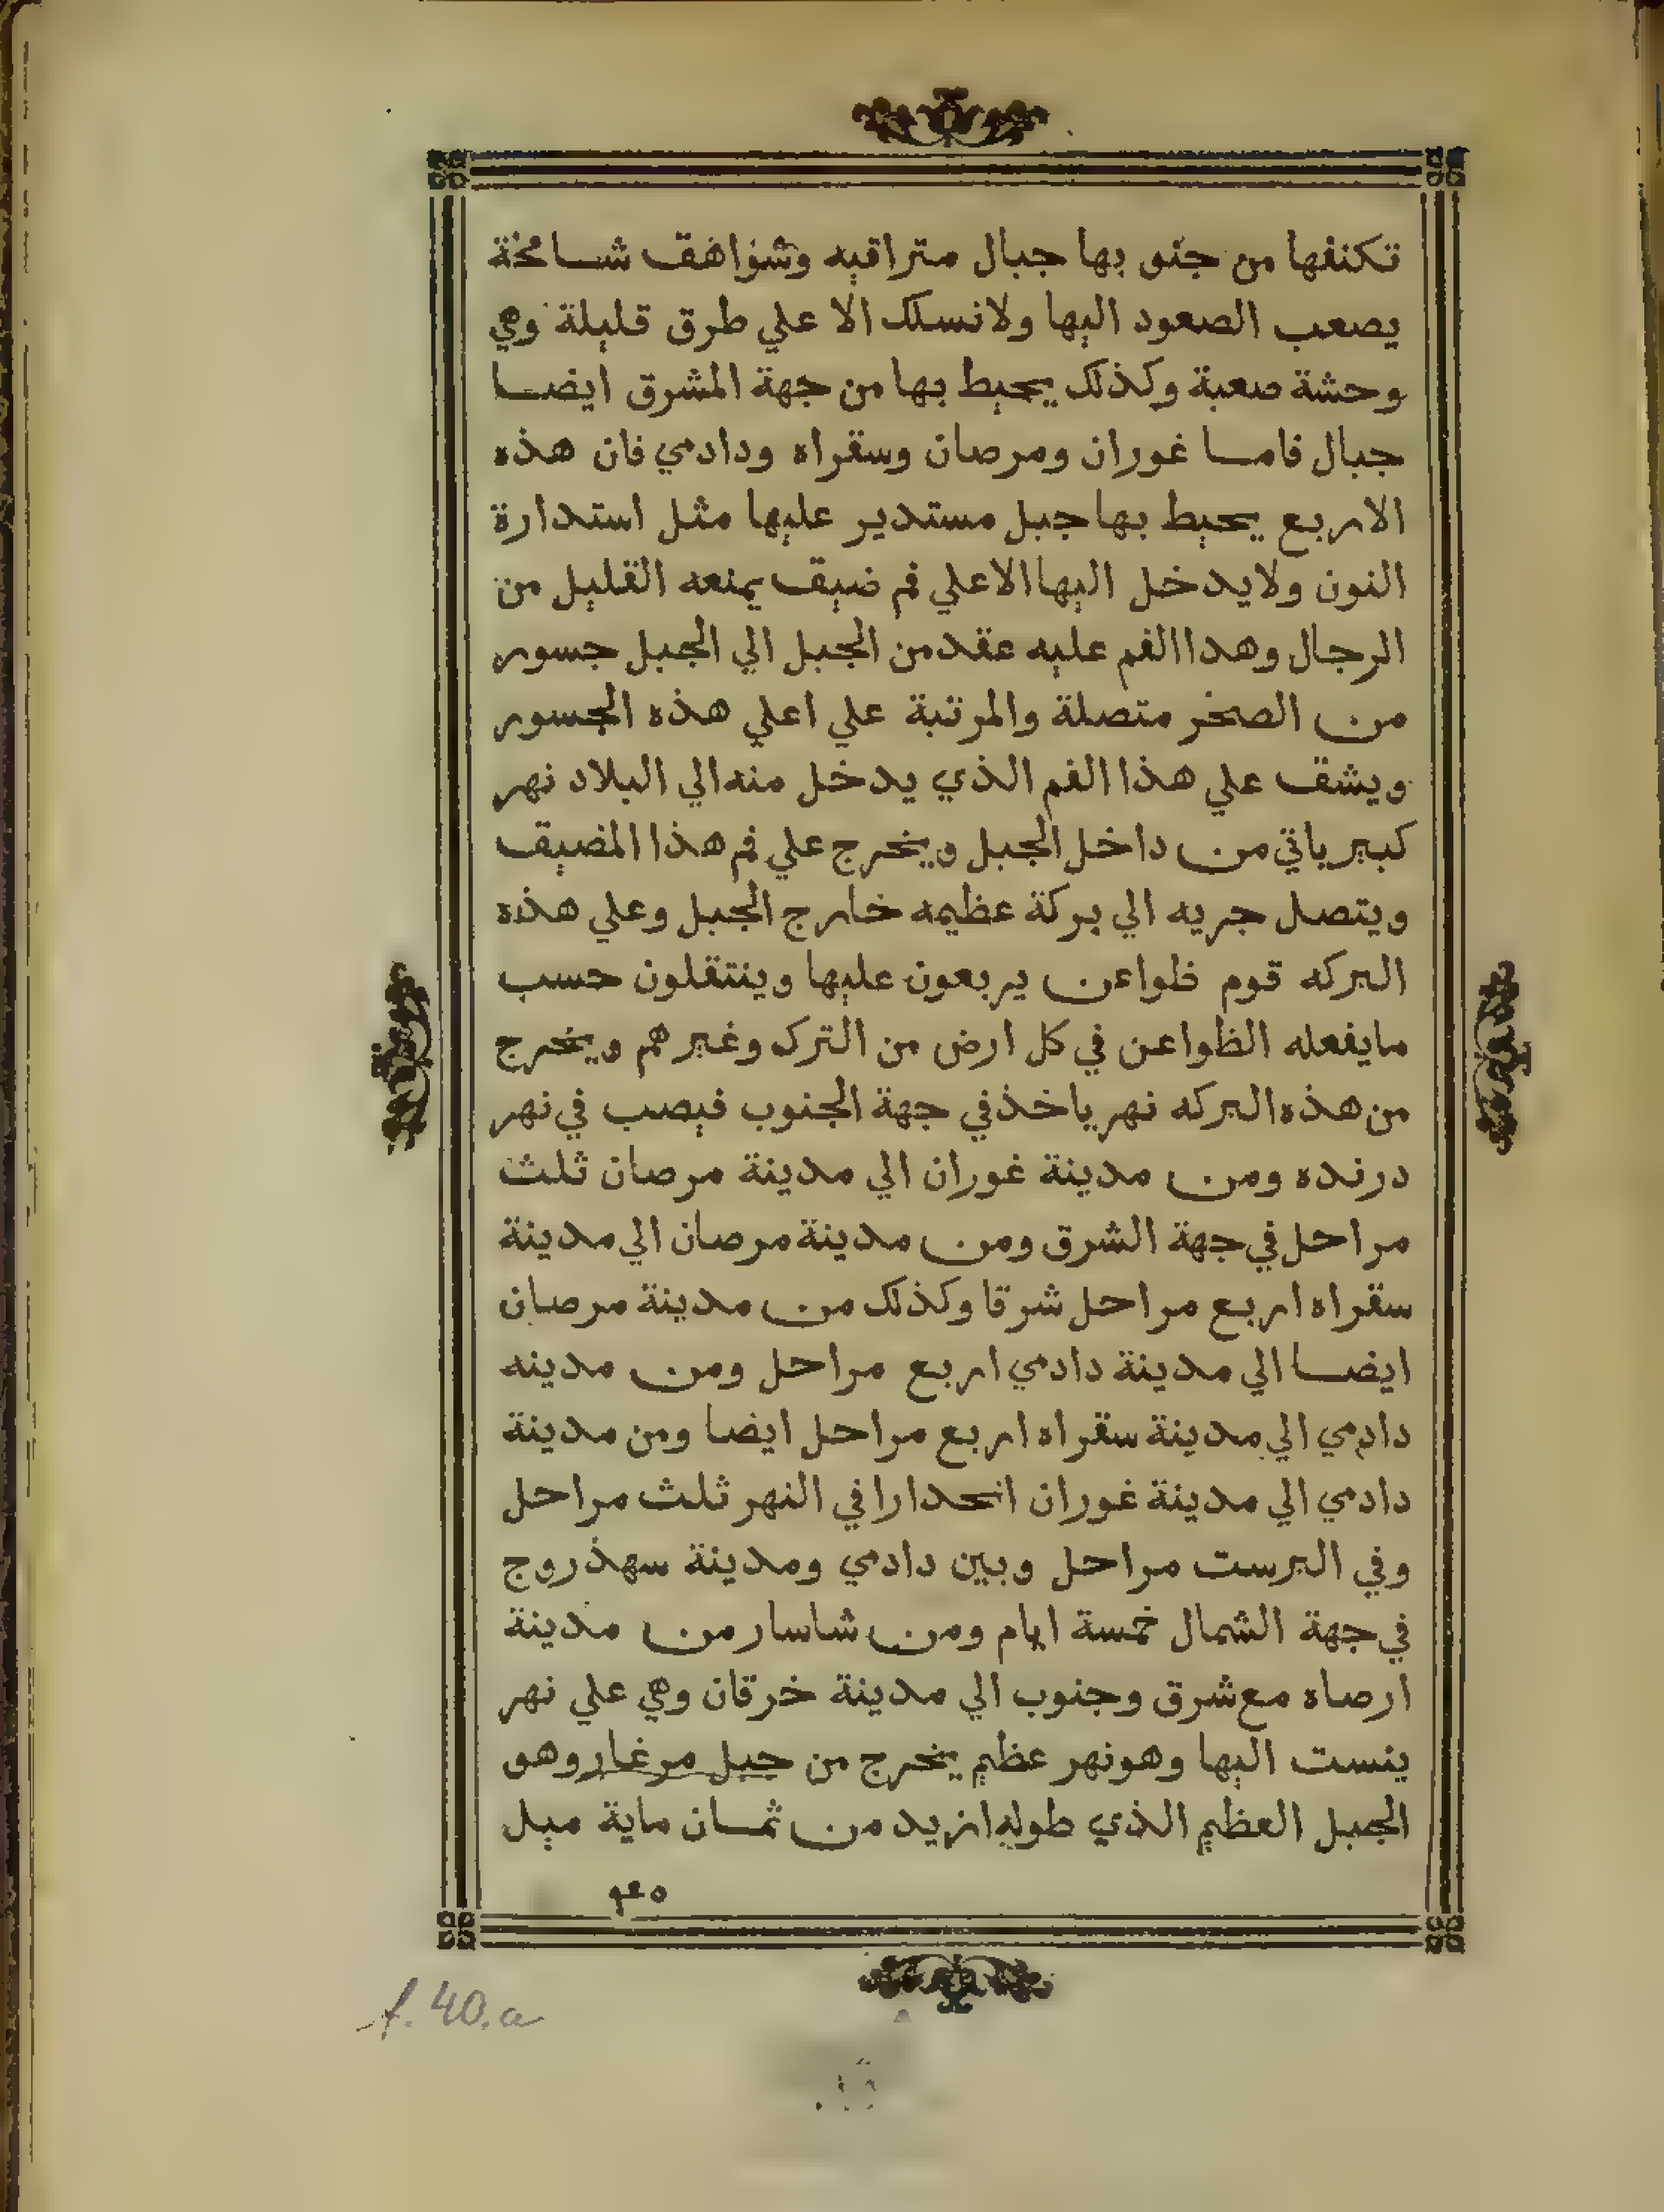 تكنفها من جنو بها جبال متراقيه وشواهق شامخة
يصعب الصعود اليها ولانسلك الا علي طرق قليلة وهي
وحشة صعبة وكذلك يحيط بها من جهة المشرق ايضا
جبال فاما غوران ومرصان وسقراه ودادمي فان هذه
الاربع يحيط بها جبل مستدير عليها مثل استدارة
النون ولايدخل اليها الاعلي فم ضيق يمنعه القليل من
الرجال وهدا الفم عليه عقد من الجبل الي الجبل جسور
من الصخر متصلة والمرتبة علي اعلي هذه الجسور
ويشق علي هذا الفم الذي يدخل منه الي البلاد نهر
كبير ياتي من داخل الجبل ويخرج علي فم هذا المضيق
ويتصل جريه الي بركة عظيمه خارج الجبل وعلي هذه
البركه قوم ظواعن يربعون عليها وينتقلون حسب
مايفعله الظواعن في كل ارض من الترك وغيرهم ويخرج
من هذه البركه نهر ياخذ في جهة الجنوب فيصب في نهر
درنده ومن مدينة غوران الي مدينة مرصان ثلث
مراحل في جهة الشرق ومن مدينة مرصان الي مدينة
سقراه اربع مراحل شرقا وكذلك من مدينة مرصان
ايضا الي مدينة دادمي اربع مراحل ومن مدينه
دادمي الي مدينة سقراه اربع مراحل ايضا ومن مدينة
دادمي الي مدينة غوران انحدارا في النهر ثلث مراحل
وفي البرست مراحل وبين دادمي ومدينة سهذروج
في جهة الشمال خمسة ايام ومن شاسار من مدينة
ارصاه مع شرق وجنوب الي مدينة خرقان وهي علي نهر
ينست اليها وهونهر عظيم يخرج من جبل مرغار وهو
الجبل العظيم الذي طوله ازيد من ثمان ماية ميل
f. 40.a